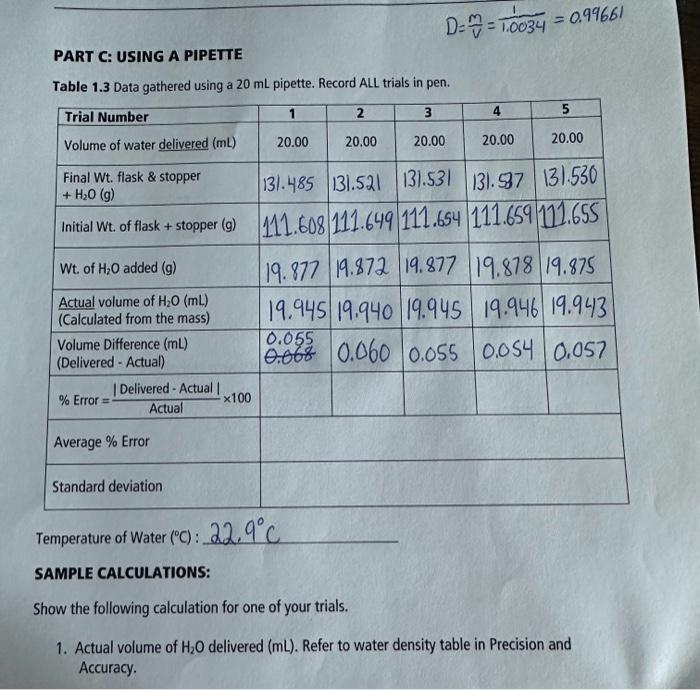 D = m/V = 1/1.0034 = 0.99661
PART C: USING A PIPETTE
Table 1.3 Data gathered using a 20 mL pipette. Record ALL trials in pen.
Trial Number 1 2 3 4 5
Volume of water delivered (mL) 20.00 20.00 20.00 20.00 20.00
Final Wt. flask & stopper
+ H₂O (g) 131.485 131.521 131.531 131.537 131.530
Initial Wt. of flask + stopper (g) 111.608 111.649 111.654 111.659 111.655
Wt. of H₂O added (g) 19.877 19.872 19.877 19.878 19.875
Actual volume of H₂O (mL)
(Calculated from the mass) 19.945 19.940 19.945 19.946 19.943
Volume Difference (mL) 0.055
(Delivered - Actual) 0.068 0.060 0.055 0.054 0.057
% Error = | Delivered - Actual | / Actual ×100
Average % Error
Standard deviation
Temperature of Water (°C) : 22.9°C
SAMPLE CALCULATIONS:
Show the following calculation for one of your trials.
1. Actual volume of H₂O delivered (mL). Refer to water density table in Precision and
Accuracy.